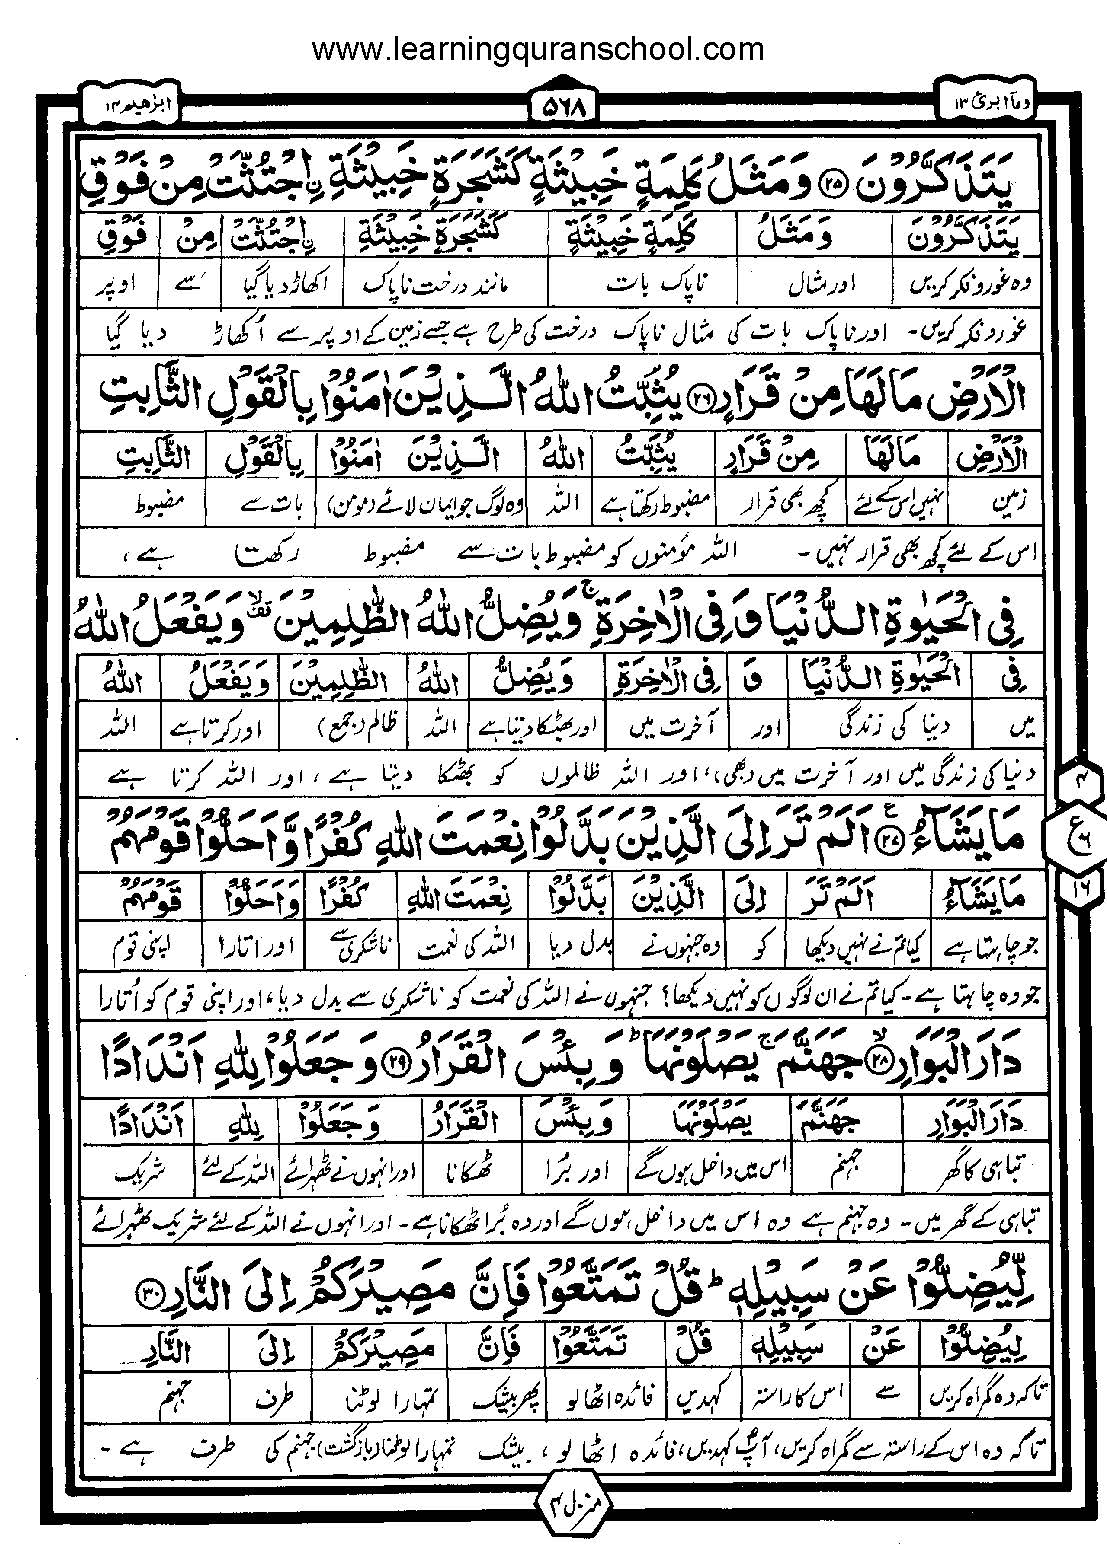 www.learningquranschool.com
ومآ ابرئ ۱۳
۵۶۸
ابرٰهيم ۱۴
يَتَذَكَّرُوْنَ ۲۵ وَمَثَلُ كَلِمَةٍ خَبِيْثَةٍ كَشَجَرَةٍ خَبِيْثَةِ ِۨاجْتُثَّتْ مِنْ فَوْقِ
يَتَذَكَّرُوْنَ وَمَثَلُ كَلِمَةٍ خَبِيْثَةٍ كَشَجَرَةٍ خَبِيْثَةِ ِۨاجْتُثَّتْ مِنْ فَوْقِ
وہ غور و فکر کریں اور مثال ناپاک بات مانند درخت ناپاک اکھاڑ دیا گیا سے اوپر
غور و فکر کریں۔ اور ناپاک بات کی مثال ناپاک درخت کی طرح ہے جسے زمین کے اوپر سے اُکھاڑ دیا گیا
الْاَرْضِ مَا لَهَا مِنْ قَرَارٍ ۲۶ يُثَبِّتُ اللهُ الَّذِيْنَ اٰمَنُوْا بِالْقَوْلِ الثَّابِتِ
الْاَرْضِ مَا لَهَا مِنْ قَرَارٍ يُثَبِّتُ اللهُ الَّذِيْنَ اٰمَنُوْا بِالْقَوْلِ الثَّابِتِ
زمین نہیں اس کے لئے کچھ بھی قرار مضبوط رکھتا ہے اللہ وہ لوگ جو ایمان لائے (مومن) بات سے مضبوط
اس کے لئے کچھ بھی قرار نہیں۔ اللہ مؤمنوں کو مضبوط بات سے مضبوط رکھتا ہے،
فِى الْحَيٰوةِ الدُّنْيَا وَفِى الْاٰخِرَةِ ۚ وَيُضِلُّ اللهُ الظّٰلِمِيْنَ وَيَفْعَلُ اللهُ
فِى الْحَيٰوةِ الدُّنْيَا وَ فِى الْاٰخِرَةِ وَيُضِلُّ اللهُ الظّٰلِمِيْنَ وَيَفْعَلُ اللهُ
میں دنیا کی زندگی اور آخرت میں اور بھٹکا دیتا ہے اللہ ظالم (جمع) اور کرتا ہے اللہ
دنیا کی زندگی میں اور آخرت میں (بھی)، اور اللہ ظالموں کو بھٹکا دیتا ہے، اور اللہ کرتا ہے
مَا يَشَآءُ ۲۷ اَلَمْ تَرَ اِلَى الَّذِيْنَ بَدَّلُوْا نِعْمَتَ اللهِ كُفْرًا وَّاَحَلُّوْا قَوْمَهُمْ
۴
ع ۶
۱۶
مَا يَشَآءُ اَلَمْ تَرَ اِلَى الَّذِيْنَ بَدَّلُوْا نِعْمَتَ اللهِ كُفْرًا وَاَحَلُّوْا قَوْمَهُمْ
جو چاہتا ہے کیا تم نے نہیں دیکھا کو وہ جنہوں نے بدل دیا اللہ کی نعمت ناشکری سے اور اتارا اپنی قوم
جو وہ چاہتا ہے۔ کیا تم نے ان لوگوں کو نہیں دیکھا؟ جنہوں نے اللہ کی نعمت کو ناشکری سے بدل دیا، اور اپنی قوم کو اُتارا
دَارَ الْبَوَارِ ۲۸ جَهَنَّمَ ۚ يَصْلَوْنَهَا ؕ وَبِئْسَ الْقَرَارُ ۲۹ وَجَعَلُوْا لِلّٰهِ اَنْدَادًا
دَارَ الْبَوَارِ جَهَنَّمَ يَصْلَوْنَهَا وَبِئْسَ الْقَرَارُ وَجَعَلُوْا لِلّٰهِ اَنْدَادًا
تباہی کا گھر جہنم اس میں داخل ہوں گے اور بُرا ٹھکانا اور انہوں نے ٹھہرائے اللہ کے لئے شریک
تباہی کے گھر میں۔ وہ جہنم ہے وہ اس میں داخل ہوں گے اور وہ بُرا ٹھکانا ہے۔ اور انہوں نے اللہ کے لئے شریک ٹھہرائے
لِّيُضِلُّوْا عَنْ سَبِيْلِهٖ ؕ قُلْ تَمَتَّعُوْا فَاِنَّ مَصِيْرَكُمْ اِلَى النَّارِ ۳۰
لِيُضِلُّوْا عَنْ سَبِيْلِهٖ قُلْ تَمَتَّعُوْا فَاِنَّ مَصِيْرَكُمْ اِلَى النَّارِ
تاکہ وہ گمراہ کریں سے اس کا راستہ کہدیں فائدہ اٹھا لو پھر بیشک تمہارا لوٹنا طرف جہنم
تاکہ وہ اس کے راستہ سے گمراہ کریں، آپؐ کہدیں، فائدہ اٹھا لو، بیشک تمہارا لوٹنا (بازگشت) جہنم کی طرف ہے۔
منزل ۳